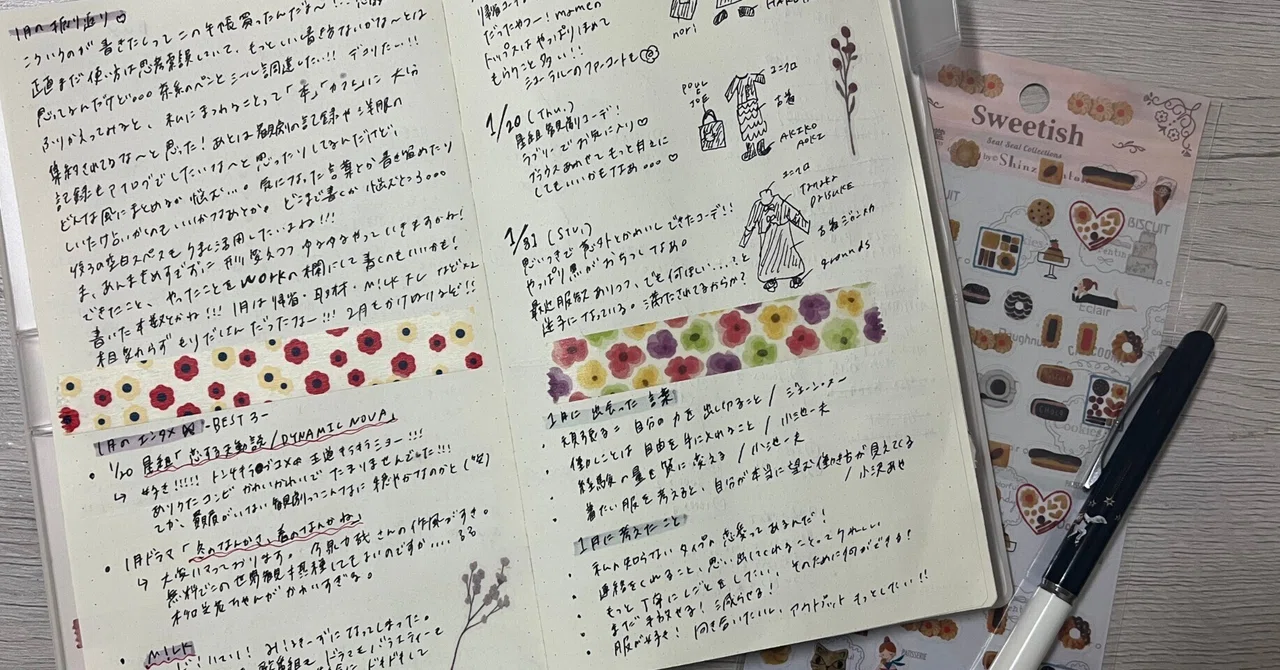 1月の振り返り♡
こういうのが書きたくってこの手帳買ったんだ〜!
正直まだ使い方は思考錯誤していて、もっといい書き方ないかな〜とは
思ってるんだけど。。。茶系のペンとシール調達したい!! デコりたい!!
ふりかえってみると、私にまつわることって「本」「カフェ」に大分
集約されてるな〜と思った!あとは観劇の記録や洋服の
記録もアナログでしたいな〜と思ったりしてるんだけど、
どんな風にまとめるか悩む…。気になった言葉とか書き留めたり
どこまで書くか悩むところ。。。
後ろの空白スペースもうまく活用したいよね!!!
ま、あんまきめすぎずに 考えつつ ゆるゆるやっていきますかね!
できたこと、やったことをWORKの欄にして書くのもいいかも!
書いた本数とかね!!! 1月は帰省・取材・M!LKトレ などなど
相変わらず もりだくさんだったなー!!! 2月もかけぬけるぞ!!
1月のエンタメ -BEST 3-
• 1/20 星組「恋する天動説/DYNAMIC NOVA」
↳ 好き!!!!! トンチキラブコメ 王道キラキラショー!!!
ありうたコンビ かわいかわいで たまりませんでした!!!
てか、贔屓がいない観劇ってこんなに穏やかなのかと(笑)
• 1月ドラマ「冬のなんかさ、春のなんかね」
↳ 大変ハマっております。今泉力哉さんの作風好き。
無料でこの世界観を摂取してもよいのですか....
杉咲花ちゃんが かわいすぎる。
• M!LK
nori
だったやつー! mamen
トップスはやっぱりほめて
もらうこと多い!!
ミュールのファーコートも
1/20 (THU.)
星組観劇コーデ!
ラブリーでお気に入り♡
ブラウスあわせてもっと甘えに
してもいいかもなあ。。。♡
POUL
E
JOE
ユニクロ
古着
AKIKO
AOKI
1/31 (STU.)
思いつきで意外とかわいくできたコーデ!!
やっぱ黒がおちつくなあ。
最近服欲ありつつ、でも何ほしい.....?と
迷子になっている。満たされてるからか?
ユニクロ
Tanaka
DAISUKE
古着
grounds
1月に出会った言葉
• 頑張る=自分の力を出し切ること / ジェーン・スー
• 働くことは 自由を手に入れること / 小池一夫
• 経験の量を質に変える / 小池一夫
• 着たい服を考えると、自分が本当に望む働き方が見えてくる
/ 小沢あや
1月に考えたこと
• 私の知らないタイプの恋愛ってあるんだ!
• 連絡をくれること、思い出してくれることってうれしい
• もっと丁寧にしごとをしたい! そのために何ができる?
• まだ手放せる! 減らせる!
• 服が好き! 向き合いたいし、アウトプットもっとしたい!!
Sweetish
Seal Seal Collections
by
Shinzi Katoh
BISCUIT
Eclair
Doughnut
Cookies
PATISSERIE